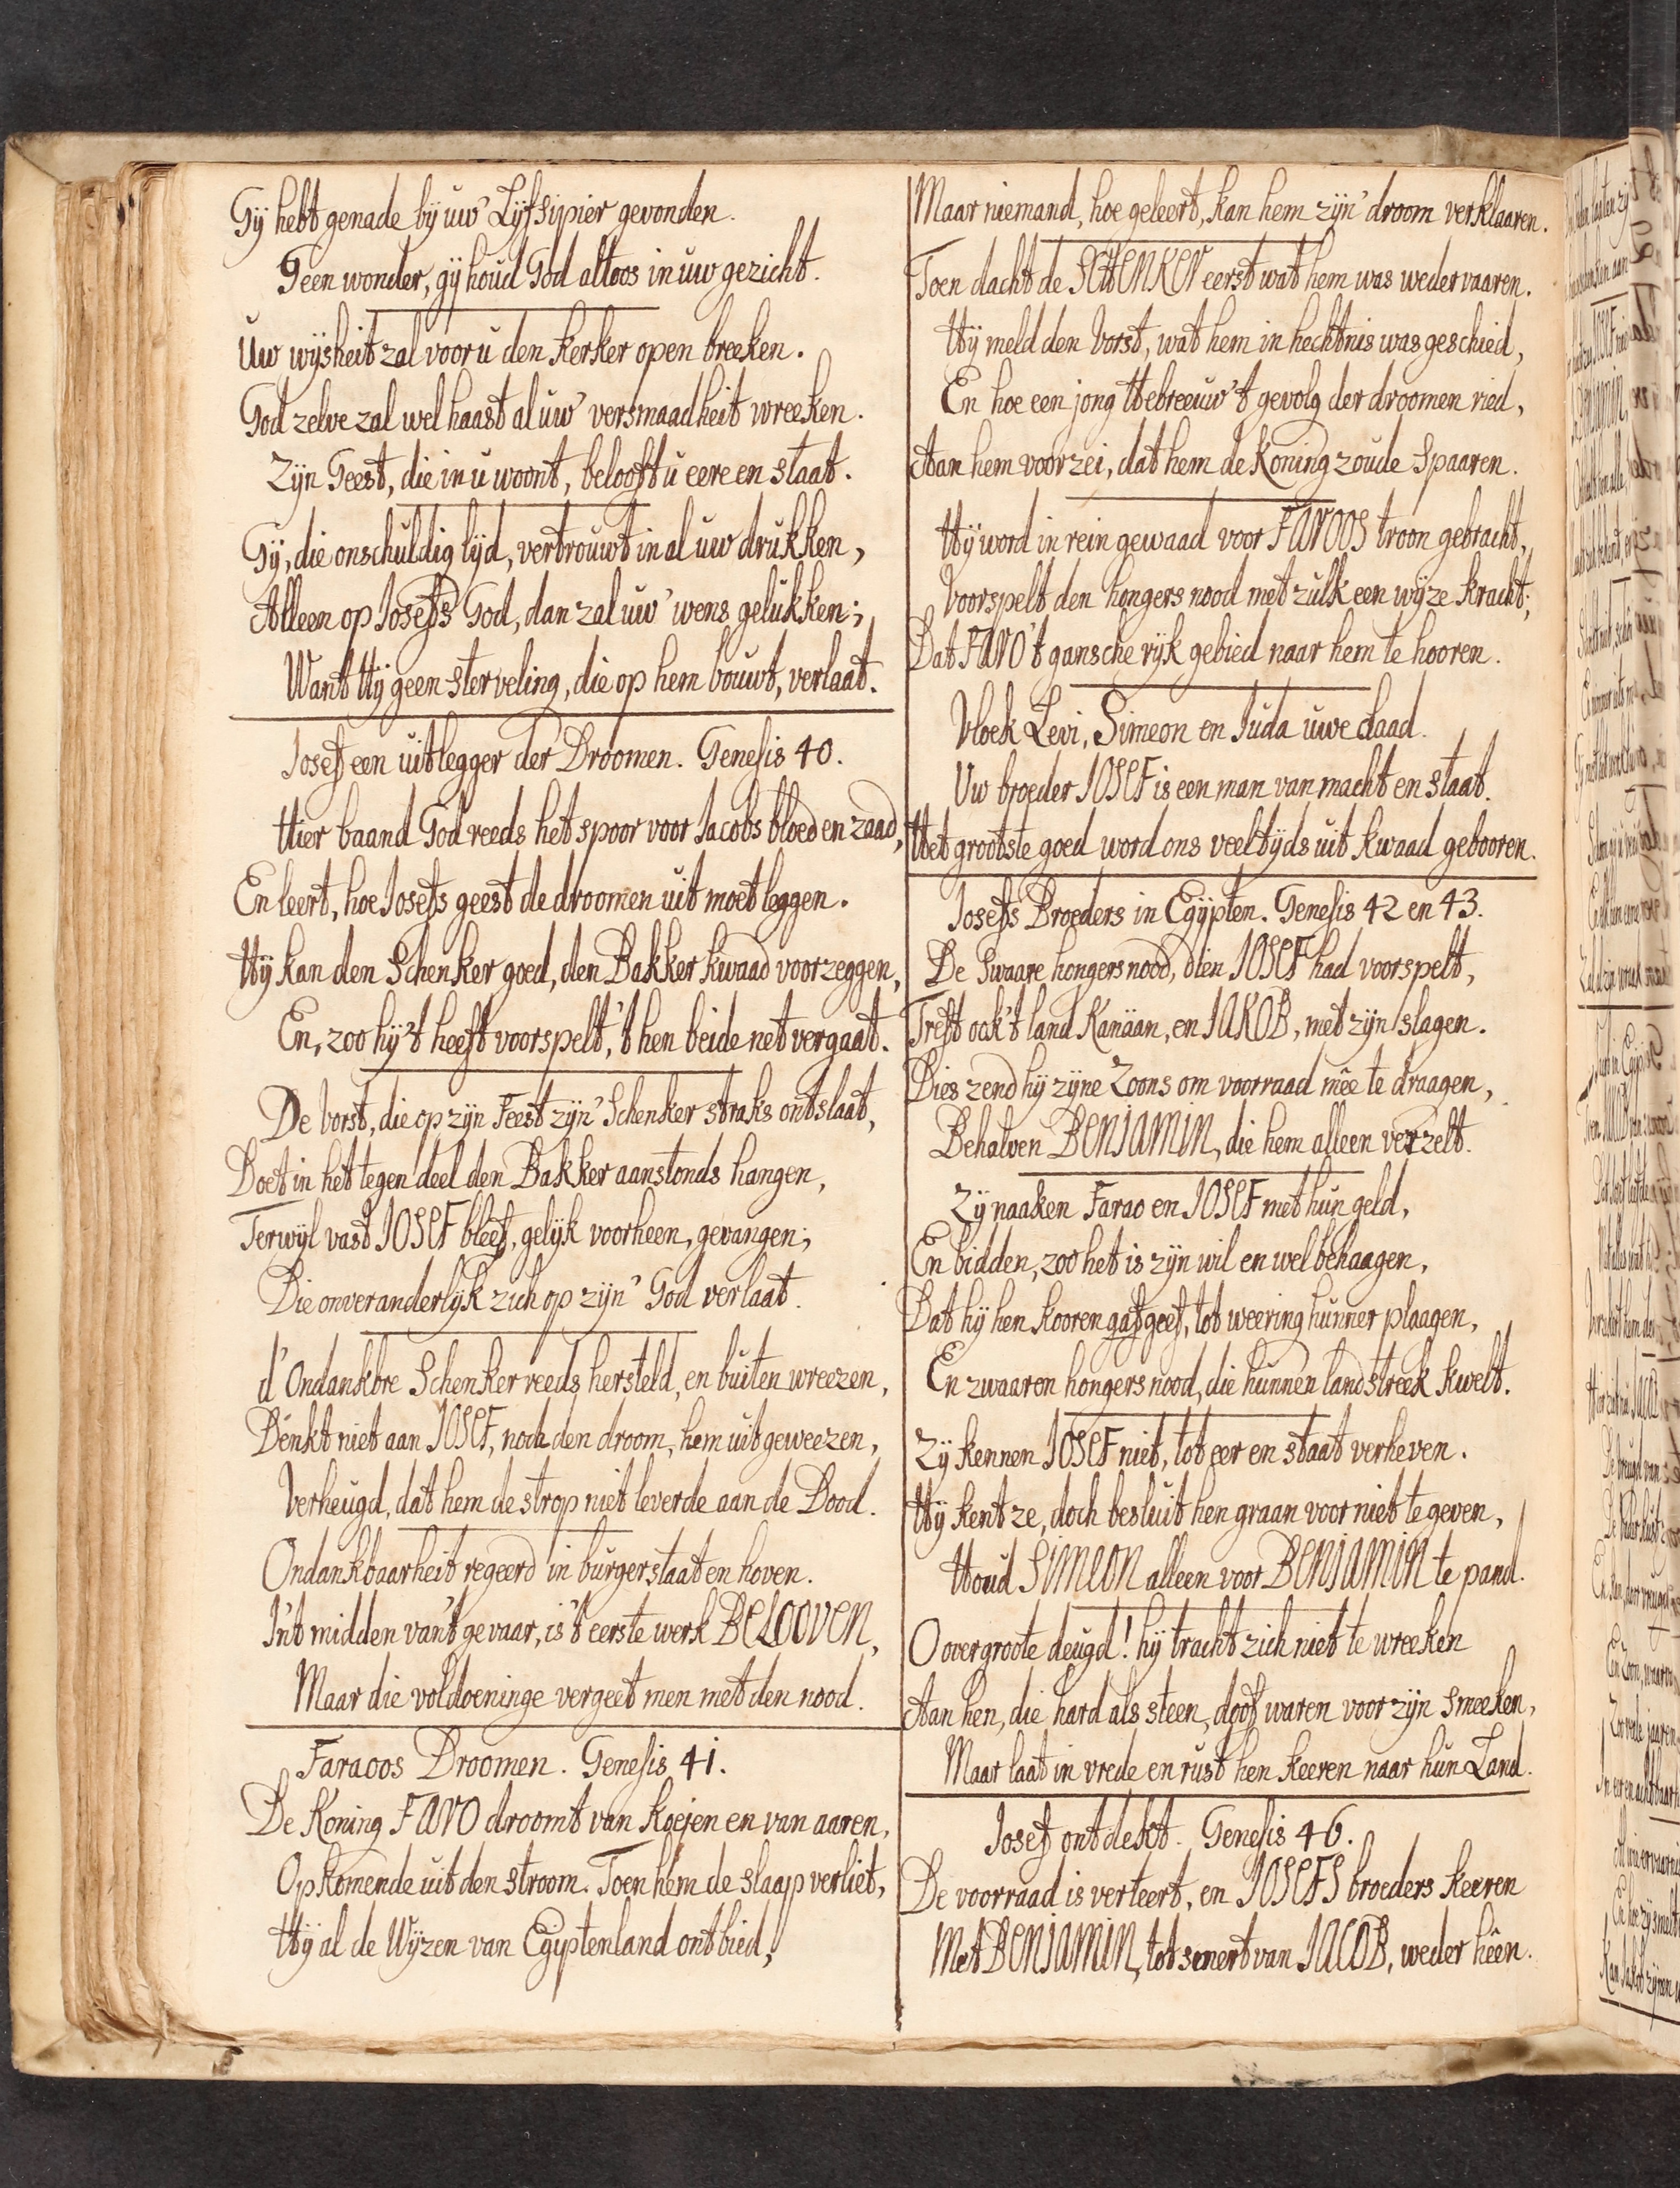 Gij hebt genade bij uw' Lijfsipier gevonden.
Geen wonder, gij houd God altoos in uw gezicht.
Uw wijsheit zal voor u den kerker open breeken.
God zelve zal wel haast al uw' versmaadheit wreeken.
Zijn Geest, die in u woont, belooft u eere en staat.
Gij, die onschuldig lijd, vertrouwt in al uw drukken,
Alleen op Josefs God, dan zal uw' wens gelukken;
Want Hij geen sterveling, die op hem bouwt, verlaat.
Josef een uitlegger der Droomen. Genesis 40.
Hier baand God reeds het spoor voor Jacobs bloed en zaad,
En leert, hoe Josefs geest de droomen uit moet leggen.
Hij kan den Schenker goed, den Bakker kwaad voorzeggen,
En, zoo hij 't heeft voorspelt, 't hen beide net vergaat.
De Vorst, die op zijn Feest zijn' Schenker straks ontslaat,
Doet in het tegendeel den Bakker aanstonds hangen,
Terwijl vast JOSEF bleef, gelijk voorheen, gevangen;
Die onveranderlijk zich op zijn' God verlaat.
d'Ondankbre Schenker reeds hersteld, en buiten vreezen,
Denkt niet aan JOSEF, noch den droom, hem uitgeweezen,
Verheugd, dat hem de strop niet leverde aan de Dood.
Ondankbaarheit regeerd in burgerstaat en hoven.
In't midden van't gevaar, is 't eerste werk BELOOVEN,
Maar die voldoeninge vergeet men met den nood.
Faraoos Droomen. Genesis 41.
De Koning FARO droomt van koejen en van aaren,
Opkomende uit den stroom. Toen hem de slaap verliet,
Hij al de Wijzen van Egijptenland ontbied;
Maar niemand, hoe geleert, kan hem zijn' droom verklaaren.
Toen dacht de SCHENKER eerst wat hem was wedervaaren.
Hij meld den Vorst, wat hem in hechtnis was geschied,
En hoe een jong Hebreeuw 't gevolg der droomen ried,
Aan hem voorzei, dat hem de Koning zoude Spaaren.
Hij word in rein gewaad voor FAROOS troon gebracht,
Voorspelt den hongers nood met zulk een wijze kracht;
Dat FARO 't gansche rijk gebied naar hem te hooren.
Vloek Levi, Simeon en Juda uwe daad.
Uw broeder JOSEF is een man van macht en staat.
Het grootste goed word ons veeltijds uit kwaad gebooren.
Josefs Broeders in Egijpten. Genesis 42 en 43.
De Swaare hongersnood, dien JOSEF had voorspelt,
Treft ook 't land Kanäan, en JAKOB, met zijn slagen.
Dies zend hij zijne Zoons om voorraad mêe te draagen,
Behalven BENJAMIN, die hem alleen verzelt.
Zij naaken Farao en JOSEF met hun geld,
En bidden, zoo het is zijn wil en welbehaagen,
Dat hij hen kooren gaf geef, tot weering hunner plaagen,
En zwaaren hongersnood, die hunnen landstreek kwelt.
Zij kennen JOSEF niet, tot eer en staat verheven.
Hij kent ze, doch besluit hen graan voor niet te geven,
Houd SIMEON alleen voor BENJAMIN te pand.
O overgroote deugd! hij tracht zich niet te wreeken
Aan hen, die hard als steen, doof waren voor zijn smeeken,
Maar laat in vrede en rust hen keeren naar hun Land.
Josef ontdekt. Genesis 46.
De voorraad is verteert, en JOSEFS broeders keeren
Met BENJAMIN, tot smert van JACOB, weder hêen.